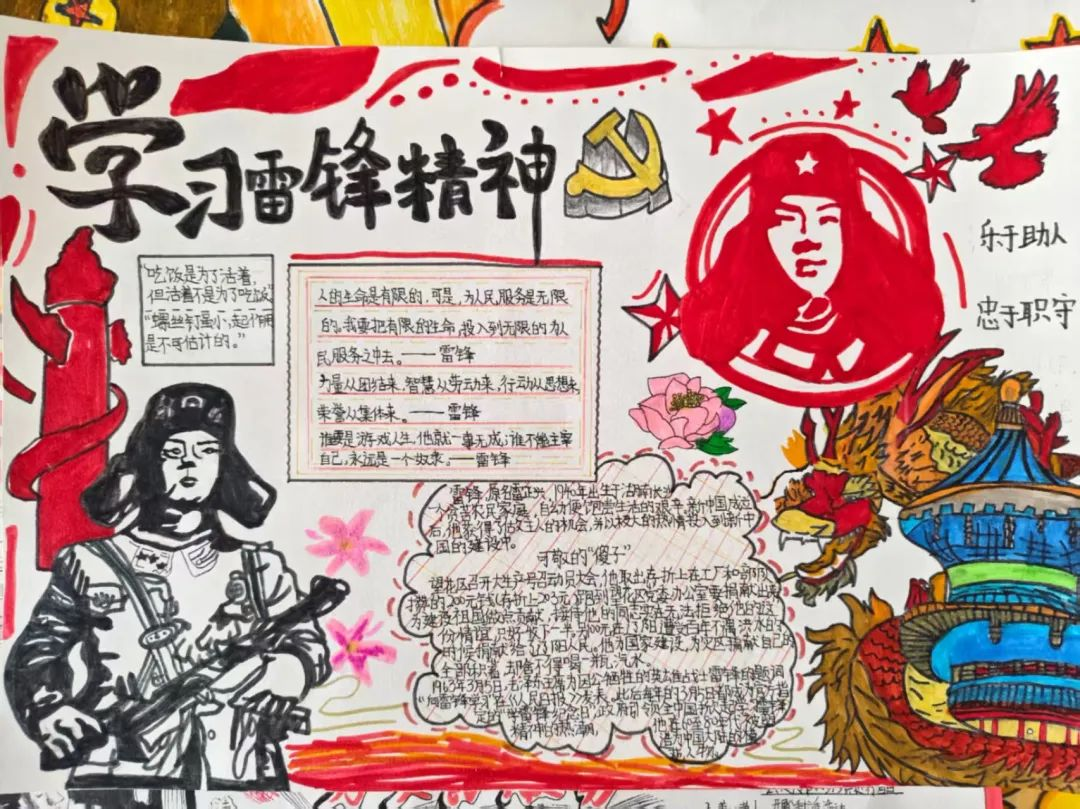 学习雷锋精神
乐于助人
忠于职守
"吃饭是为了活着,
但活着不是为了吃饭"
"螺丝钉虽小,起个用
是不可估计的。"
人的生命是有限的,可是,为人民服务是无限
的。我要把有限的生命,投入到无限的为人
民服务之中去。——雷锋
力量从团结来,智慧从劳动来,行动从思想来,
荣誉从集体来。——雷锋
谁要是游戏人生,他就一事无成;谁不能主宰
自己,永远是一个奴隶。——雷锋
雷锋,原名雷正兴,1940年出生于湖南长沙
一个贫苦农民家庭,自幼
生活的艰辛,新中国成立
后,他获得了
的机会,并以极大的热情投入到新中
国的建设中。
可敬的"傻子"
望花区召开大生产号召动员大会,他取出存折上在工厂和部队
200元
存折上203元
跑到望花区党委办公室要捐献出来
为建设祖国做点贡献,接侍他的同志实在无法拒绝他的这
份情谊,只好收下一半。100元在辽阳遭受百年不遇洪水的
时候捐献给了辽阳人民。他为国家建设,为灾区捐献自己的
全部积蓄,却舍不得喝一瓶汽水。
1963年3月5日,毛泽东主席为因公牺牲的英雄战士雷锋的题词
"向雷锋学
《人民日报》发表,此后每年的3月5日都成为
学雷锋纪念日"
政府
领全国
学习雷锋
精神的热潮,
80年代
中国大陆的
人物。